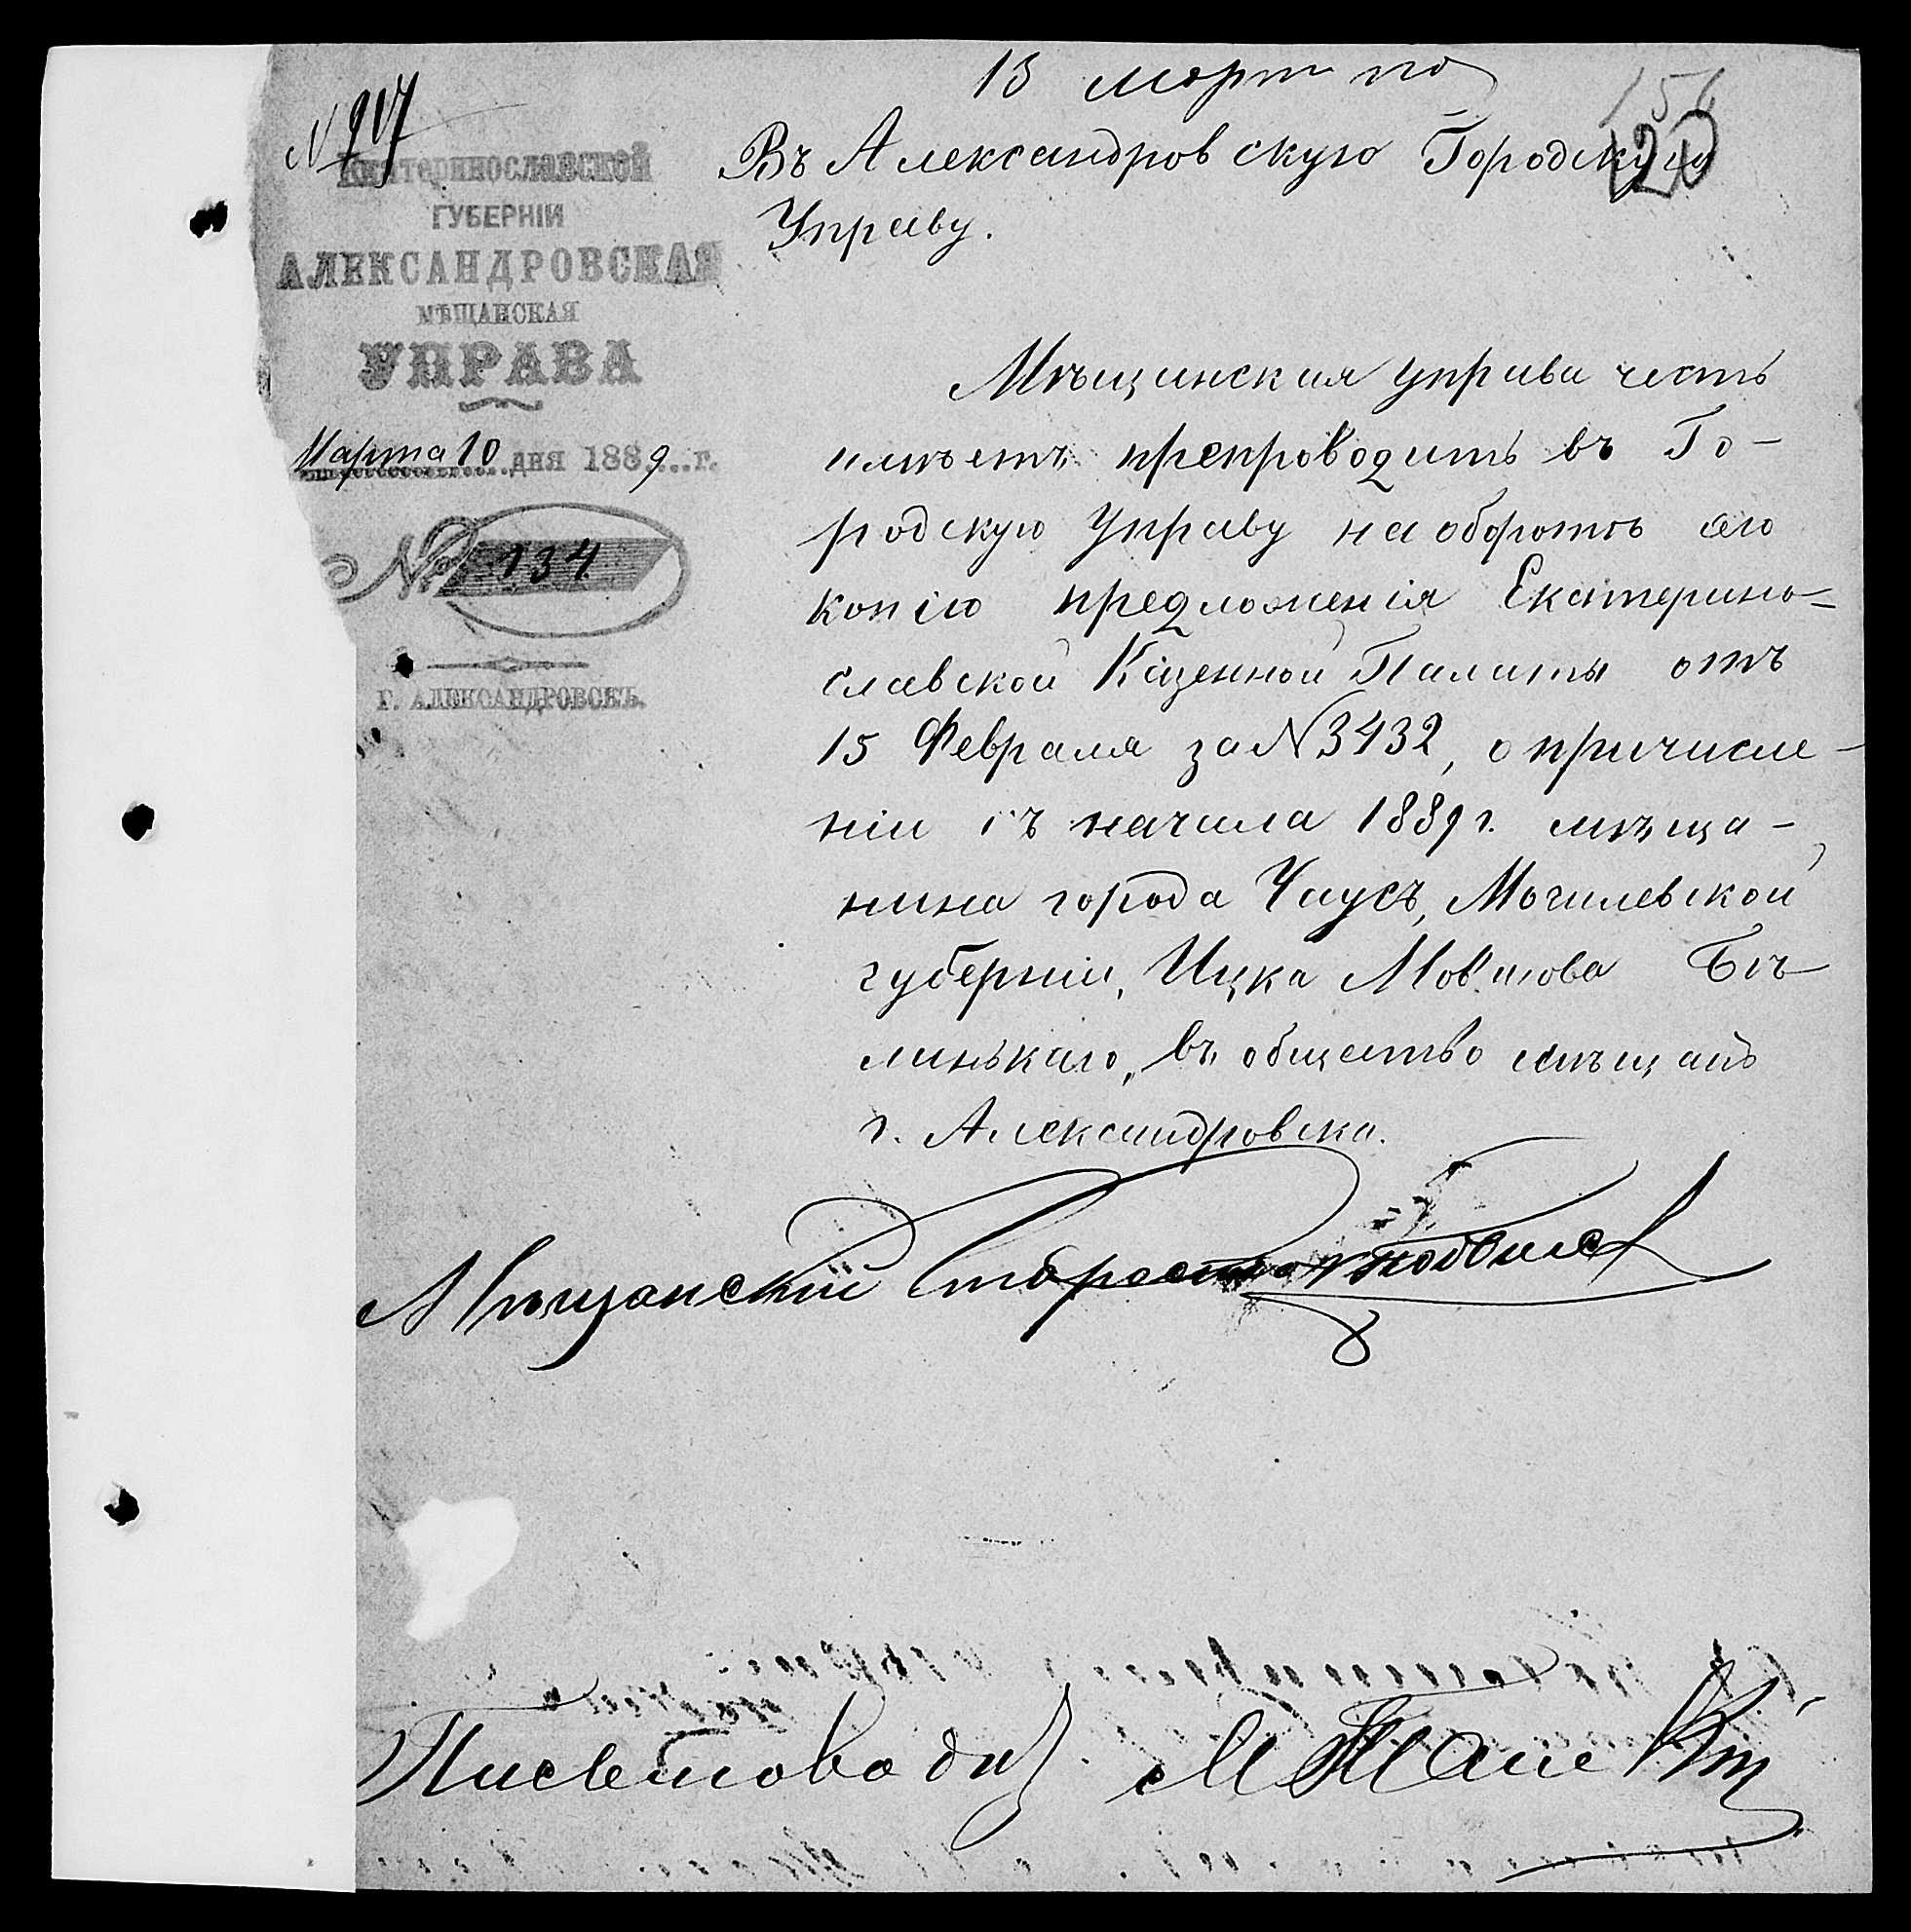 13 марта
№ 917
120
Екатеринославской
ГУБЕРНІИ
АЛЕКСАНДРОВСКАЯ
МѢЩАНСКАЯ
УПРАВА
Марта 10 дня 1889 г.
№ 134
Г. АЛЕКСАНДРОВСКЪ.
Въ Александровскую Городскую
Управу.
Мѣщанская управа честь
имѣетъ препроводить въ Го-
родскую Управу на оборотѣ сего
копію предложенія Екатерино-
славской Казенной Палаты отъ
15 Февраля за № 3432, о причисле-
ніи съ начала 1889 г. мѣща-
нина города Чаусъ, Могилевской
губерніи, Ицка Мовшова Бѣ-
линькаго, въ общество мѣщанъ
г. Александровска.
Мѣщанскій Староста
Письмоводи